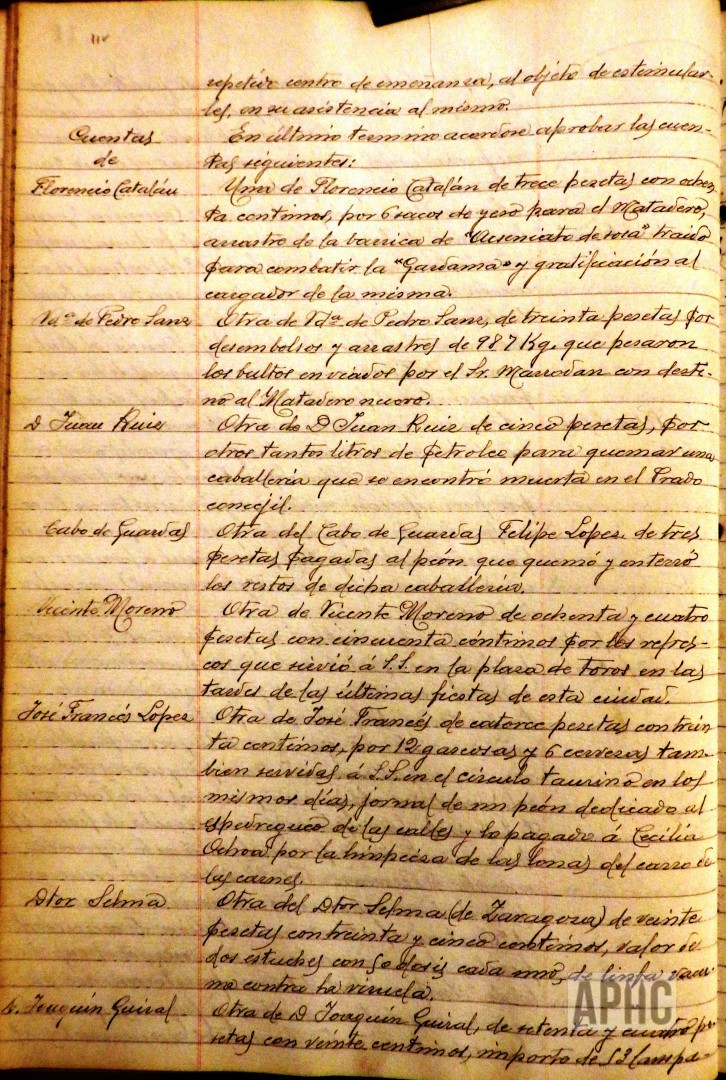 repetido centro de enseñanza, al objeto de estimular-
les, en su asistencia al mismo.
Cuentas
de
Florencio Catalán
En último termino acordose aprobar las cuen-
tas siguientes:
Una de Florencio Catalán de trece pesetas con ochen
ta centimos, por 6 sacos de yeso para el Matadero,
arrastre de la barrica de "Arseniato de sosa" traido
para combatir la "Gardama" y gratificación al
cargador de la misma.
Vdª de Pedro Sanz
Otra de Vdª de Pedro Sanz, de treinta pesetas por
desembolsos y arrastres de 987 Kg. que pesaron
los bultos enviados por el Sr. Marrodan con desti-
no al Matadero nuevo.
D Juan Ruiz
Otra de D Juan Ruiz de cinco pesetas, por
otros tantos litros de petroleo para quemar una
caballeria que se encontró muerta en el Prado
concejil.
Cabo de Guardas
Otra del Cabo de Guardas Felipe Lopez de tres
pesetas pagadas al peón que quemó y enterró
los restos de dicha caballeria.
Vicente Moreno
Otra de Vicente Moreno de ochenta y cuatro
pesetas con cincuenta céntimos por los refres-
cos que sirvió á S.S. en la plaza de toros en las
tardes de las últimas fiestas de esta ciudad.
José Francés Lopez
Otra de José Francés de catorce pesetas con trein
ta centimos, por 12 gaseosas y 6 cervezas tam-
bien servidas á S.S. en el circulo taurino en los
mismos días, jornal de un peón dedicado al
espedregueo de las calles y lo pagado á Cecilia
Ochoa por la limpieza de las lonas del carro de
las carnes.
Dtor Selma
Otra del Dtor Selma (de Zaragoza) de veinte
pesetas con treinta y cinco centimos, valor de
dos estuches con 50 dosis cada uno, de linfa vacu-
na contra la viruela.
D. Joaquín Guiral
Otra de D Joaquín Guiral, de setenta y cuatro pe
setas con veinte centimos, importe de 53 lampa-
APHC